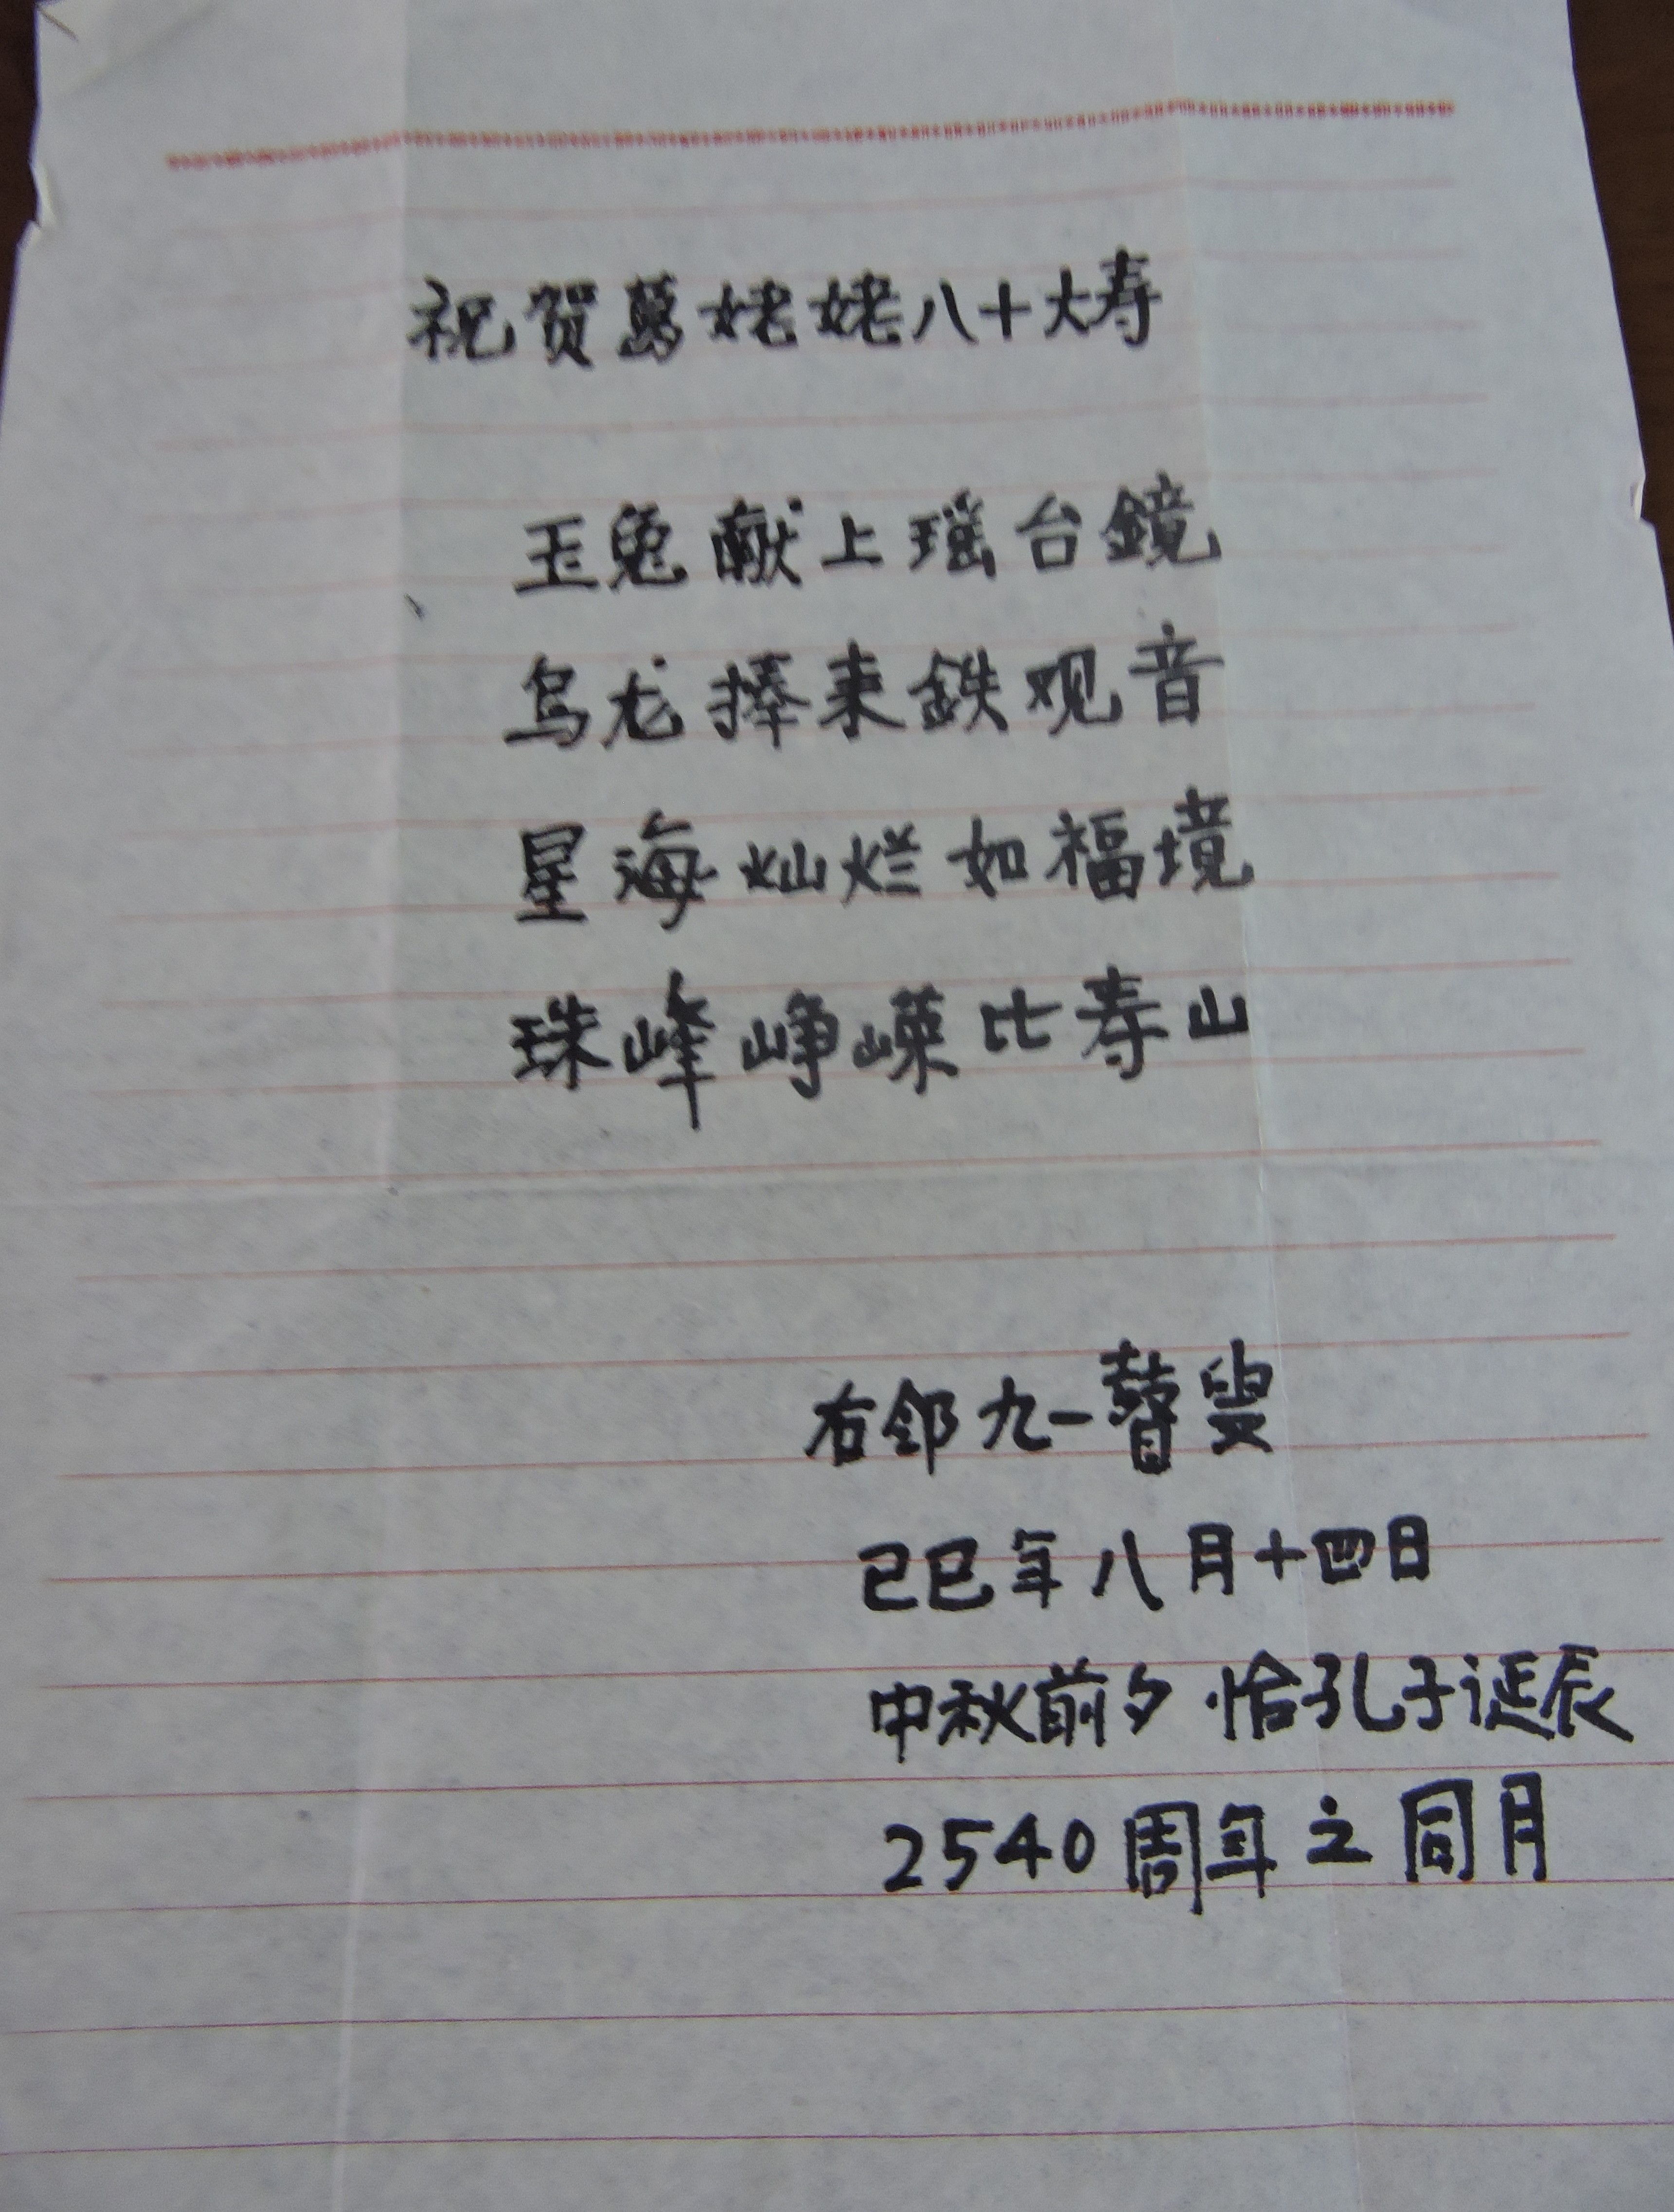 祝贺萬姥姥八十大寿
玉兔献上瑶台鏡
乌龙捧来鉄观音
星海灿烂如福境
珠峰峥嵘比寿山
右邻九一瞽叟
己巳年八月十四日
中秋前夕 恰孔子诞辰
2540周年之同月